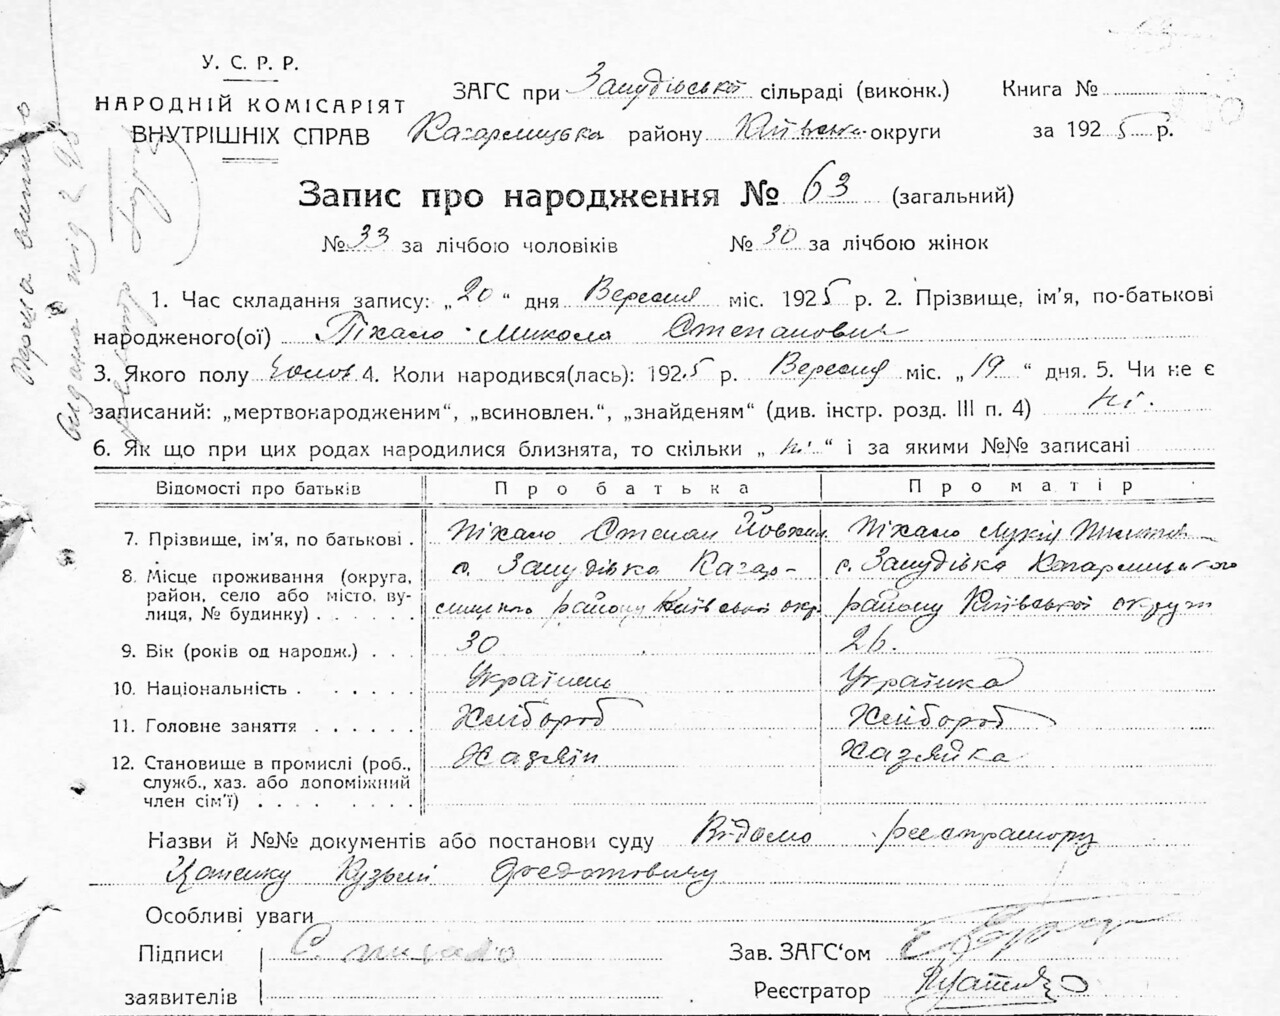 У. С. Р. Р.
НАРОДНІЙ КОМІСАРІЯТ
ВНУТРІШНІХ СПРАВ
ЗАГС при сільраді (виконк.) Книга №
району округи за 1925 р.
Запис про народження № 63 (загальний)
№ 33 за лічбою чоловіків № 30 за лічбою жінок
1. Час складання запису: „20“ дня Вересня міс. 1925 р. 2. Прізвище, ім’я, по-батькові
народженого(ої) Піхало Микола Степанович
3. Якого полу 4. Коли народився(лась): 1925 р. Вересня міс. „19“ дня. 5. Чи не є
записаний: „мертвонародженим“, „всиновлен.“, „знайденям“ (див. інстр. розд. III п. 4) ні.
6. Як що при цих родах народилися близнята, то скільки „ні“ і за якими №№ записані
Відомості про батьків Про батька Про матір
7. Прізвище, ім’я, по батькові . Піхало Степан Піхало
8. Місце проживання (округа, с. с.
район, село або місто, ву- району Київської окр. району Київської округи
лиця, № будинку) . . . . . .
9. Вік (років од народж.) . . . 30 26.
10. Національність . . . . . . . Українець Українка
11. Головне заняття . . . . . . Хлібороб Хлібороб
12. Становище в промислі (роб., Хазяїн Хазяйка
служб., хаз. або допоміжний
член сім’ї) . . . . . . . . .
Назви й №№ документів або постанови суду Відомо реєстратору
Кузьмі Федотовичу
Особливі уваги
Підписи С. Зав. ЗАГС‘ом
заявителів Реєстратор